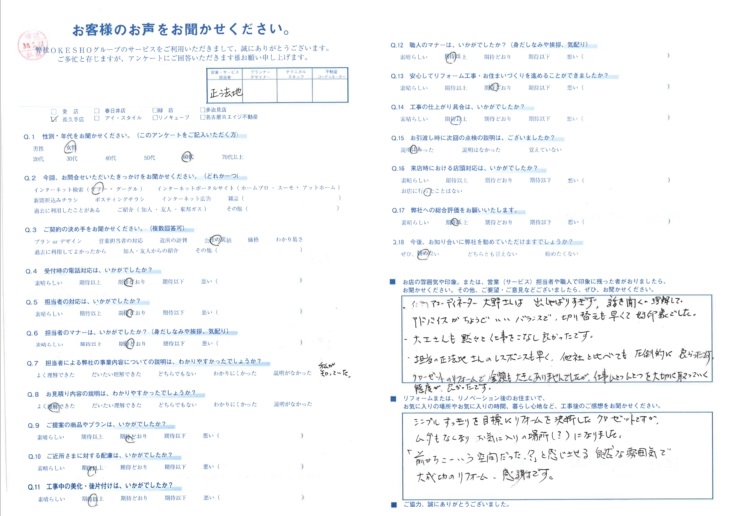 お客様のお声をお聞かせください。
弊社OKESHOグループのサービスをご利用いただきまして、誠にありがとうございます。
ご多忙と存じますが、アンケートにご回答いただきます様お願い申し上げます。
営業・サービス担当者
プランナー デザイナー
テクニカル スタッフ
不動産
正法地
□ 本 店 □ 春日井店 □ 緑 店
長久手店 □ アイ・スタイル □ リノキューブ □ 名古屋ロエイジ不動産
Q.1 性別・年代をお聞かせください。（このアンケートをご記入いただく方）
男性 女性
20代 30代 40代 50代 60代 70代以上
Q.2 今回、お問合せいただいたきっかけをお聞かせください。（どれか一つ）
インターネット検索（ヤフー・グーグル） インターネットポータルサイト（ホームプロ・スーモ・アットホーム）
新聞折込みチラシ ポスティングチラシ インターネット広告 雑誌（
過去に利用したことがある ご紹介（知人・友人・東邦ガス） その他（ ）
Q.3 ご契約の決め手をお聞かせください。（複数回答可）
プラン or デザイン 営業担当者の対応 近所の評価 価格 わかり易さ
過去に利用してよかったから 知人・友人からの紹介 その他（ ）
Q.4 受付時の電話対応は、いかがでしたか？
素晴らしい 期待以上 期待どおり 期待以下 悪い（ ）
Q.5 担当者の対応は、いかがでしたか？
素晴らしい 期待以上 期待どおり 期待以下 悪い（ ）
Q.6 担当者のマナーは、いかがでしたか？（身だしなみや挨拶、気配り）
素晴らしい 期待以上 期待どおり 期待以下 悪い（ ）
Q.7 担当者による弊社の事業内容についての説明は、わかりやすかったでしょうか？
よく理解できた だいたい理解できた どちらでもない わかりにくかった 説明がなかった
Q.8 お見積り内容の説明は、わかりやすかったでしょうか？
よく理解できた だいたい理解できた どちらでもない わかりにくかった 説明がなかった
Q.9 ご提案の商品やプランは、いかがでしたか？
素晴らしい 期待以上 期待どおり 期待以下 悪い（ ）
Q.10 ご近所さまに対する配慮は、いかがでしたか？
素晴らしい 期待以上 期待どおり 期待以下 悪い（ ）
Q.11 工事中の美化・後片付けは、いかがでしたか？
素晴らしい 期待以上 期待どおり 期待以下 悪い（ ）
Q.12 職人のマナーは、いかがでしたか？（身だしなみや挨拶、気配り）
素晴らしい 期待以上 期待どおり 期待以下 悪い（ ）
Q.13 安心してリフォーム工事・お住まいづくりを進めることができましたか？
素晴らしい 期待以上 期待どおり 期待以下 悪い（ ）
Q.14 工事の仕上がり具合は、いかがでしたか？
素晴らしい 期待以上 期待どおり 期待以下 悪い（ ）
Q.15 お引渡し時に次回の点検の説明は、ございましたか？
説明はあった 説明はなかった 覚えていない
Q.16 来店時における店頭対応は、いかがでしたか？
素晴らしい 期待以上 期待どおり 期待以下 悪い（ ）
お店に行ったことはない
Q.17 弊社への総合評価をお願いいたします。
素晴らしい 期待以上 期待どおり 期待以下 悪い（ ）
Q.18 今後、お知り合いに弊社を勧めていただけますでしょうか？
ぜひ、勧めたい どちらとも言えない 勧めたくない
■ お店の雰囲気や印象、または、営業（サービス）担当者や職人で印象に残った者がおりましたら、
お聞かせください。その他、ご要望・ご意見などございましたら、ぜひ、お聞かせください。
コーディネーター 大野さんは 出しゃばりすぎず、話を聞く、理解して
アドバイスがちょうどいい バランスで、切り替えも早くて 好印象でした。
・大工さんも 黙々と仕事をこなし 良かったです。
・担当の正法地さんのレスポンスも早く、他社と比べても 圧倒的に 良かったです。
クローゼットのリフォームで 金額も大きくありませんでしたが、仕事ひとつひとつを大切に
態度が 良かったです。
■ リフォームまたは、リノベーション後のお住まいで、
お気に入りの場所やお気に入りの時間、暮らし心地など、工事後のご感想をお聞かせください。
シンプル すっきりを目標にリフォームを決断した クローゼットですが、
ムダもなくなり お気に入りの場所（？）になりました。
「前からこーいう空間だった？」と感じさせる 自然な雰囲気で
大成功のリフォーム。感謝です。
■ ご協力、誠にありがとうございました。